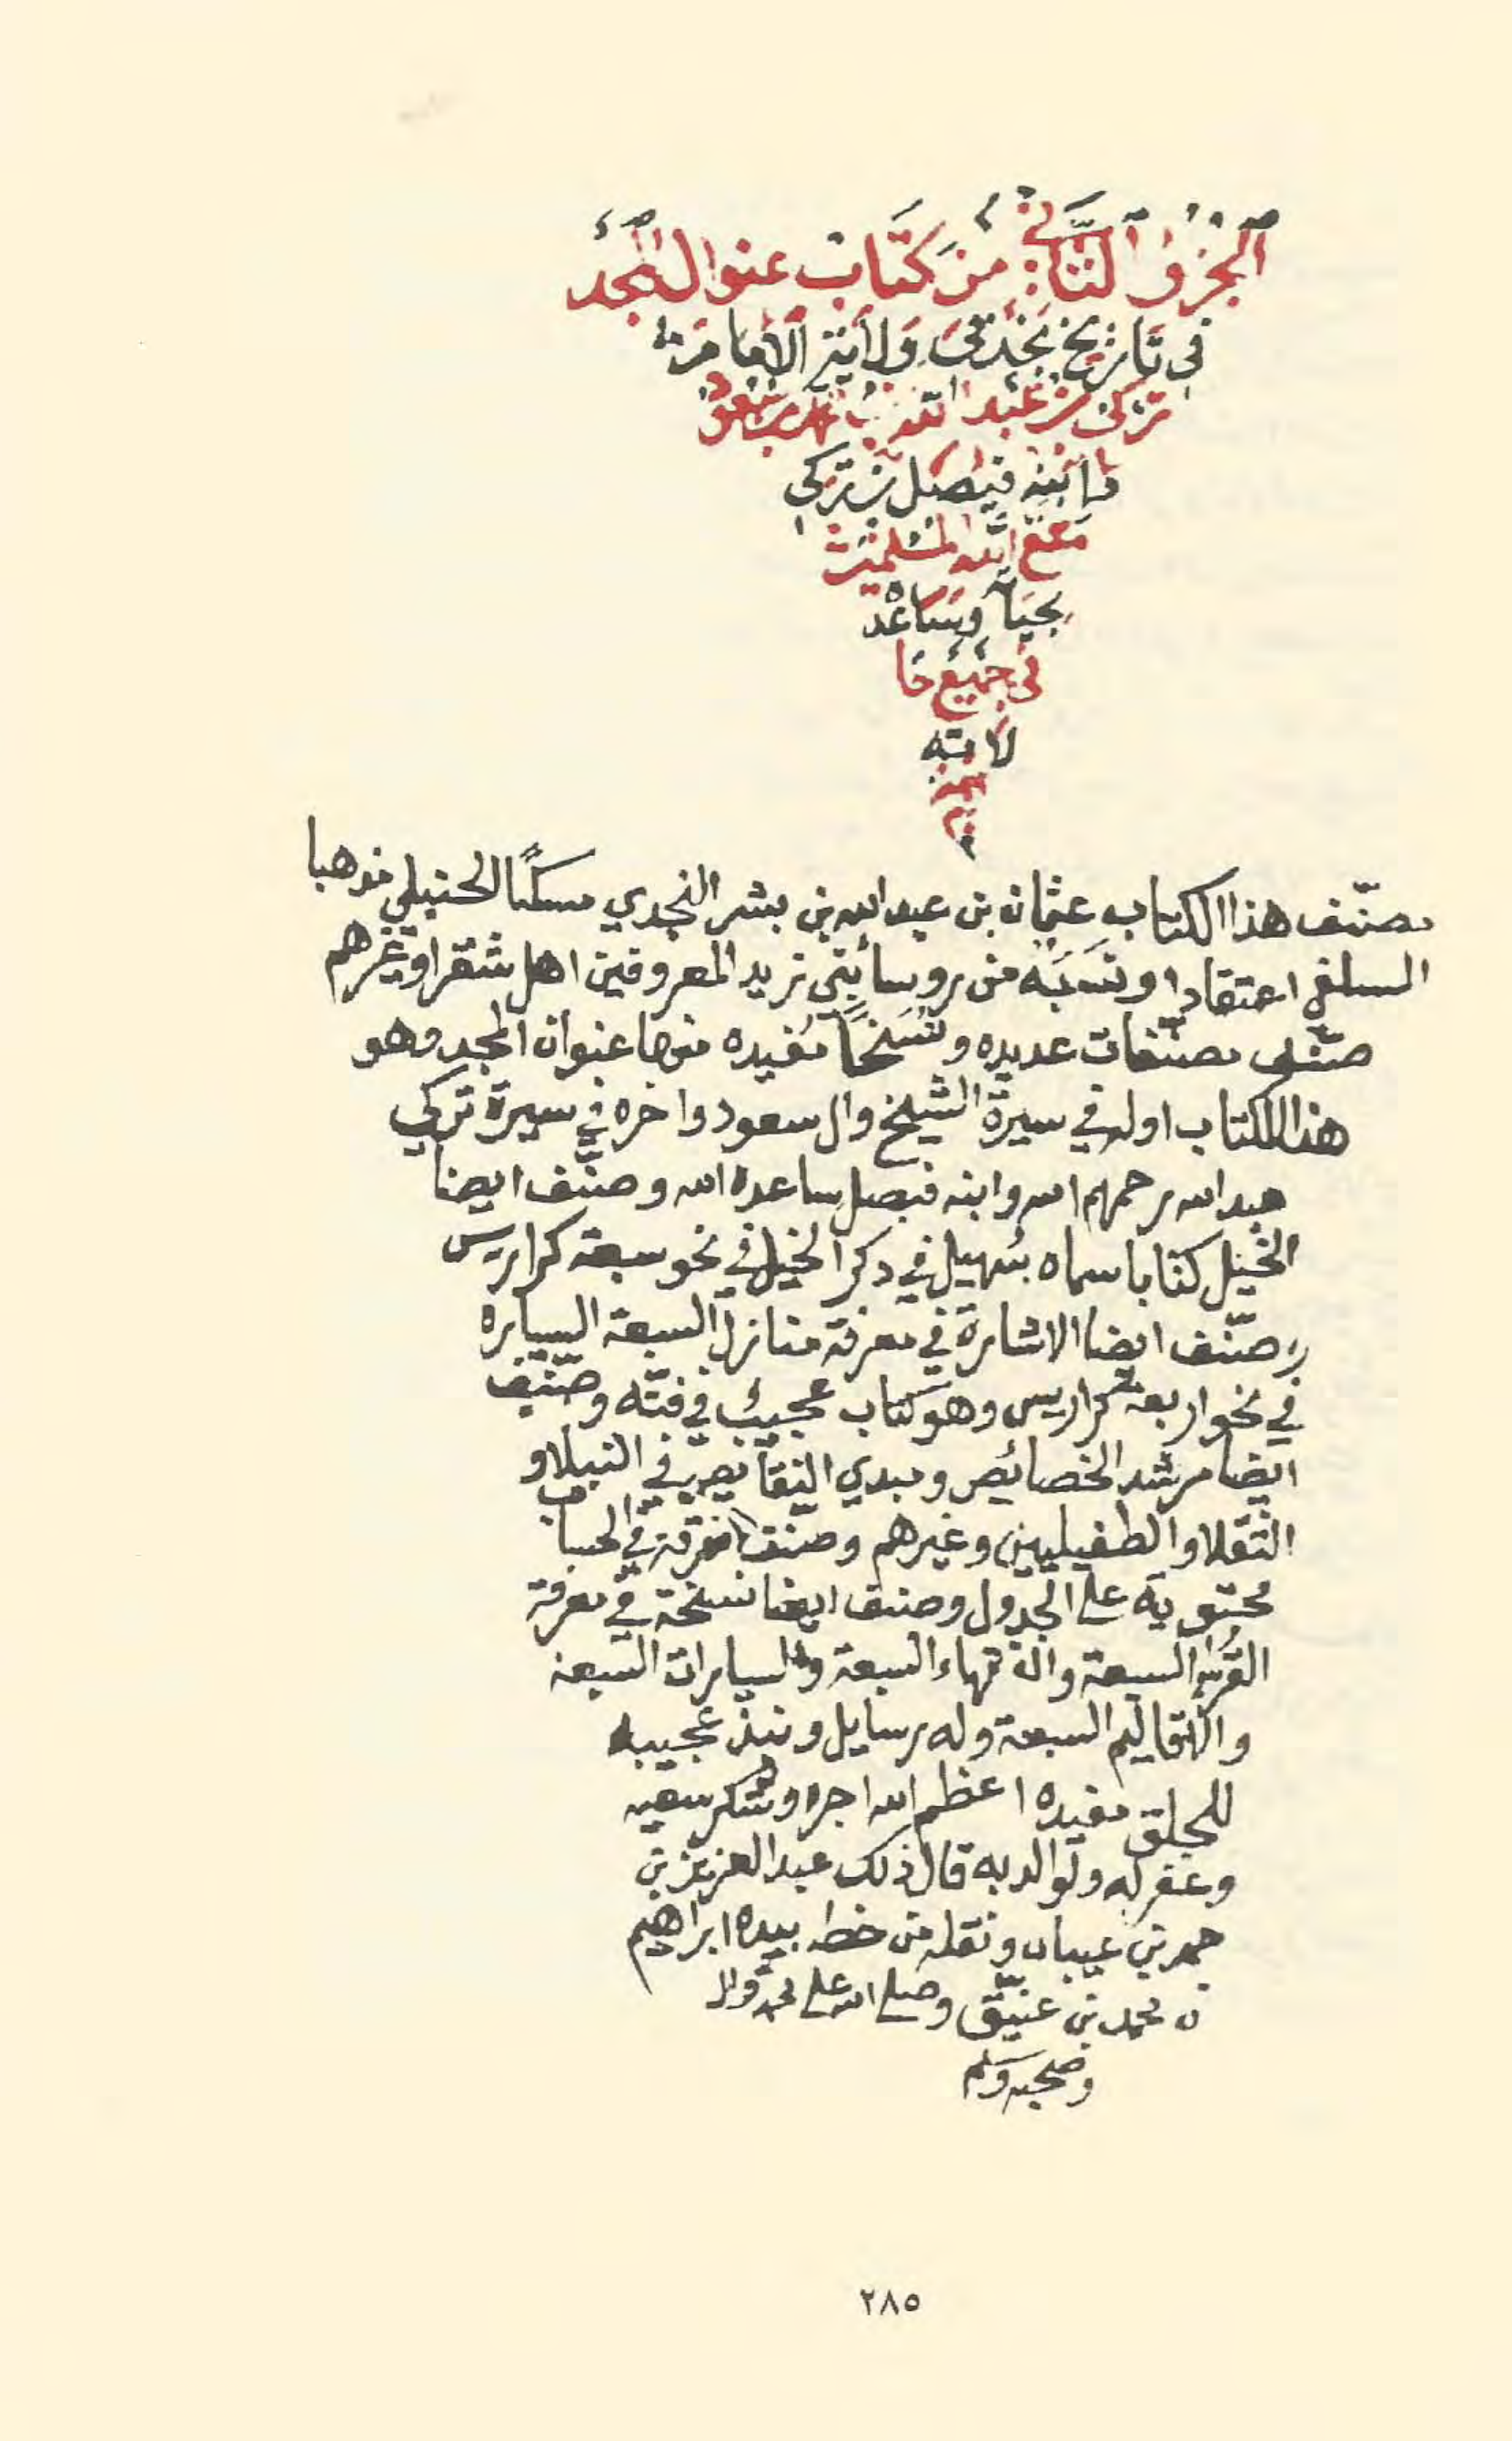 الجزؤ الثاني من كتاب عنوان المجد
في تاريخ نجد في ولاية الامام
تركي بن عبد الله بن محمد بن سعود
وابنه فيصل بن تركي
متع الله المسلمين
بحياته وساعده
في جميع حا
لاته
مصنّف هذا الكتاب عثمان بن عبدالله بن بشر النجدي مسكنًا الحنبلي مذهبا
السلفي اعتقادا ونسبه من روسا بني زيد المعروفين اهل شقرا وغيرهم
صنّف مصنّفات عديده ونسخًا مفيده منها عنوان المجد وهو
هذا الكتاب اوله في سيرة الشيخ وال سعود واخره في سيرة تركي
عبدالله رحمهم الله وابنه فيصل ساعده الله وصنّف ايضا
الخيل كتابا سماه سهيل في ذكر الخيل في نحو سبعة كراريس
وصنّف ايضا الاشارة في معرفة منازل السبعة السياره
في نحو اربعة كراريس وهو كتاب عجيب في فنّه وصنّف
ايضا مرشد الخصائص ومبدي النقائص في النبلا و
الثقلا والطفيليين وغيرهم وصنف في الحساب
محتويه على الجدول وصنف ايضا نسخة في معرفة
القرا السبعة والفقهاء السبعة والسيارات السبعة
والاقاليم السبعة وله رسايل ونبذ عجيبه
للخلق مفيده اعظم الله اجره وشكر سعيه
وغفر له ولوالديه قال ذلك عبدالعزيز بن
حمد بن عيبان ونقله من خطه بيده ابراهيم
بن محمد بن عتيّق وصلى الله على محمد واله
وصحبه وسلم
٢٨٥